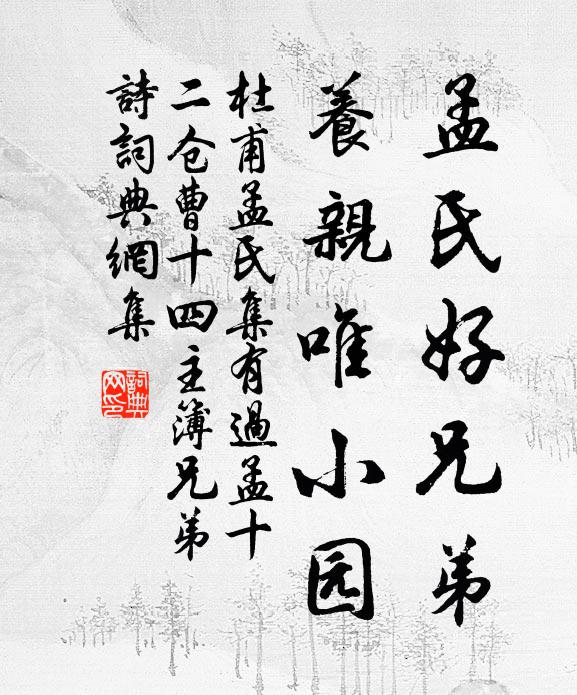 孟氏好兄弟
養親唯小园
杜甫孟氏集有過孟十
二仓曹十四主簿兄弟
詩詞典網集
詞典
网印